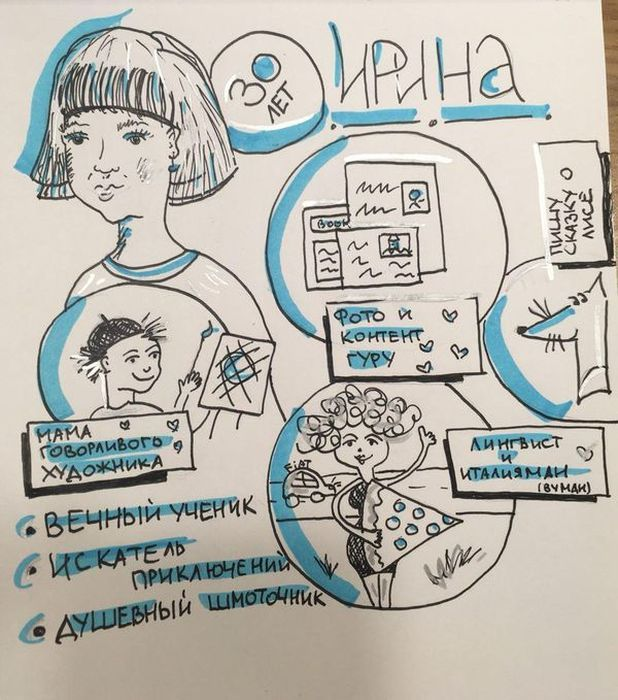 30
ЛЕТ
ИРИНА
BOOK
ПИШУ
СКАЗКУ О
ЛИСЁ
ФОТО И
КОНТЕНТ
ГУРУ
МАМА
ГОВОРЛИВОГО
ХУДОЖНИКА
FiAT
ЛИНГВИСТ
И
ИТАЛИЯМАН
(ВУМАН)
ВЕЧНЫЙ УЧЕНИК
ИСКАТЕЛЬ
ПРИКЛЮЧЕНИЙ
ДУШЕВНЫЙ ШМОТОЧНИК